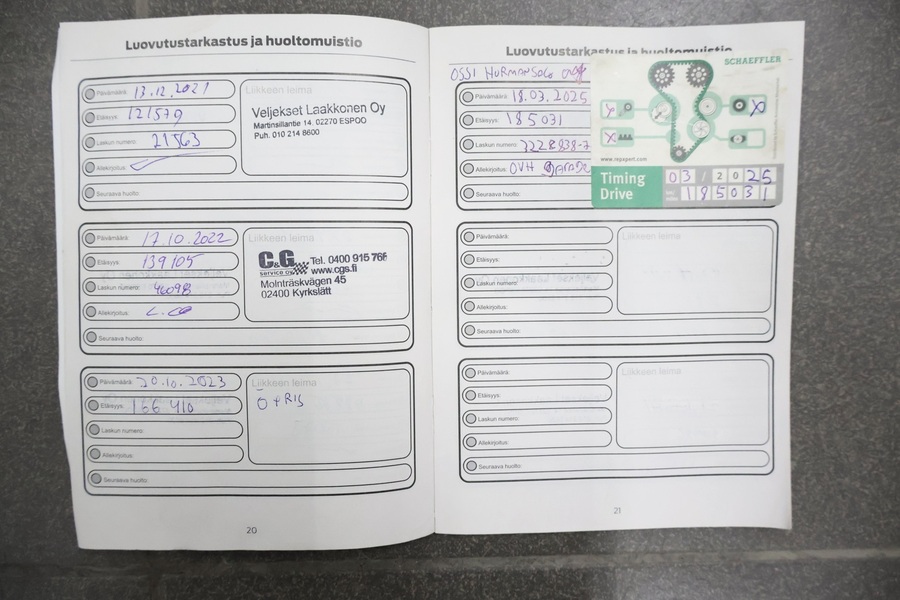 Luovutustarkastus ja huoltomuistio
Päivämäärä: 13.12.2021
Etäisyys: 121579
Laskun numero: 21563
Allekirjoitus:
Seuraava huolto:
Liikkeen leima
Veljekset Laakkonen Oy
Martinsillantie 14 02270 ESPOO
Puh. 010 214 8600
Päivämäärä: 17.10.2022
Etäisyys: 139105
Laskun numero: 46098
Allekirjoitus:
Seuraava huolto:
Liikkeen leima
C&G
service oy
Tel. 0400 915 768
www.cgs.fi
Molnträskvägen 45
02400 Kyrkslätt
Päivämäärä: 20.10.2023
Etäisyys: 166 410
Laskun numero:
Allekirjoitus:
Seuraava huolto:
Liikkeen leima
Ö + RIS
20
Luovutustarkastus ja huoltomuistio
OSSI
Päivämäärä: 18.03.2025
Etäisyys: 185031
Laskun numero:
Allekirjoitus: OVH
Seuraava huolto:
SCHAEFFLER
www.repxpert.com
Timing
Drive
03 / 2025
185031
Päivämäärä:
Etäisyys:
Laskun numero:
Allekirjoitus:
Seuraava huolto:
Liikkeen leima
Päivämäärä:
Etäisyys:
Laskun numero:
Allekirjoitus:
Seuraava huolto:
Liikkeen leima
21